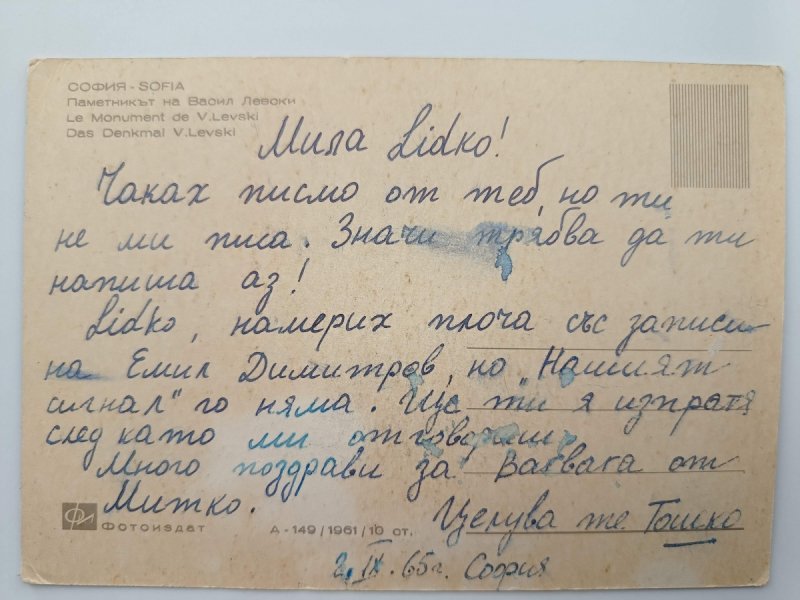 СОФИЯ - SOFIA
Паметникът на Васил Левски
Le Monument de V.Levski
Das Denkmal V.Levski
Мила Lidko!
Чаках писмо от теб, но ти
не ми писа. Значи трябва да ти
напиша аз!
Lidko, намерих плоча със записи
на Емил Димитров, но „Нашият
сигнал" го няма. Ще ти я изпратя
след като ми отговориш.
Много поздрави за от
Митко.
Целува те Тошко
ФОТОИЗДАТ
А - 149 / 1961 / 10 ст.
2. IX. 65г. София